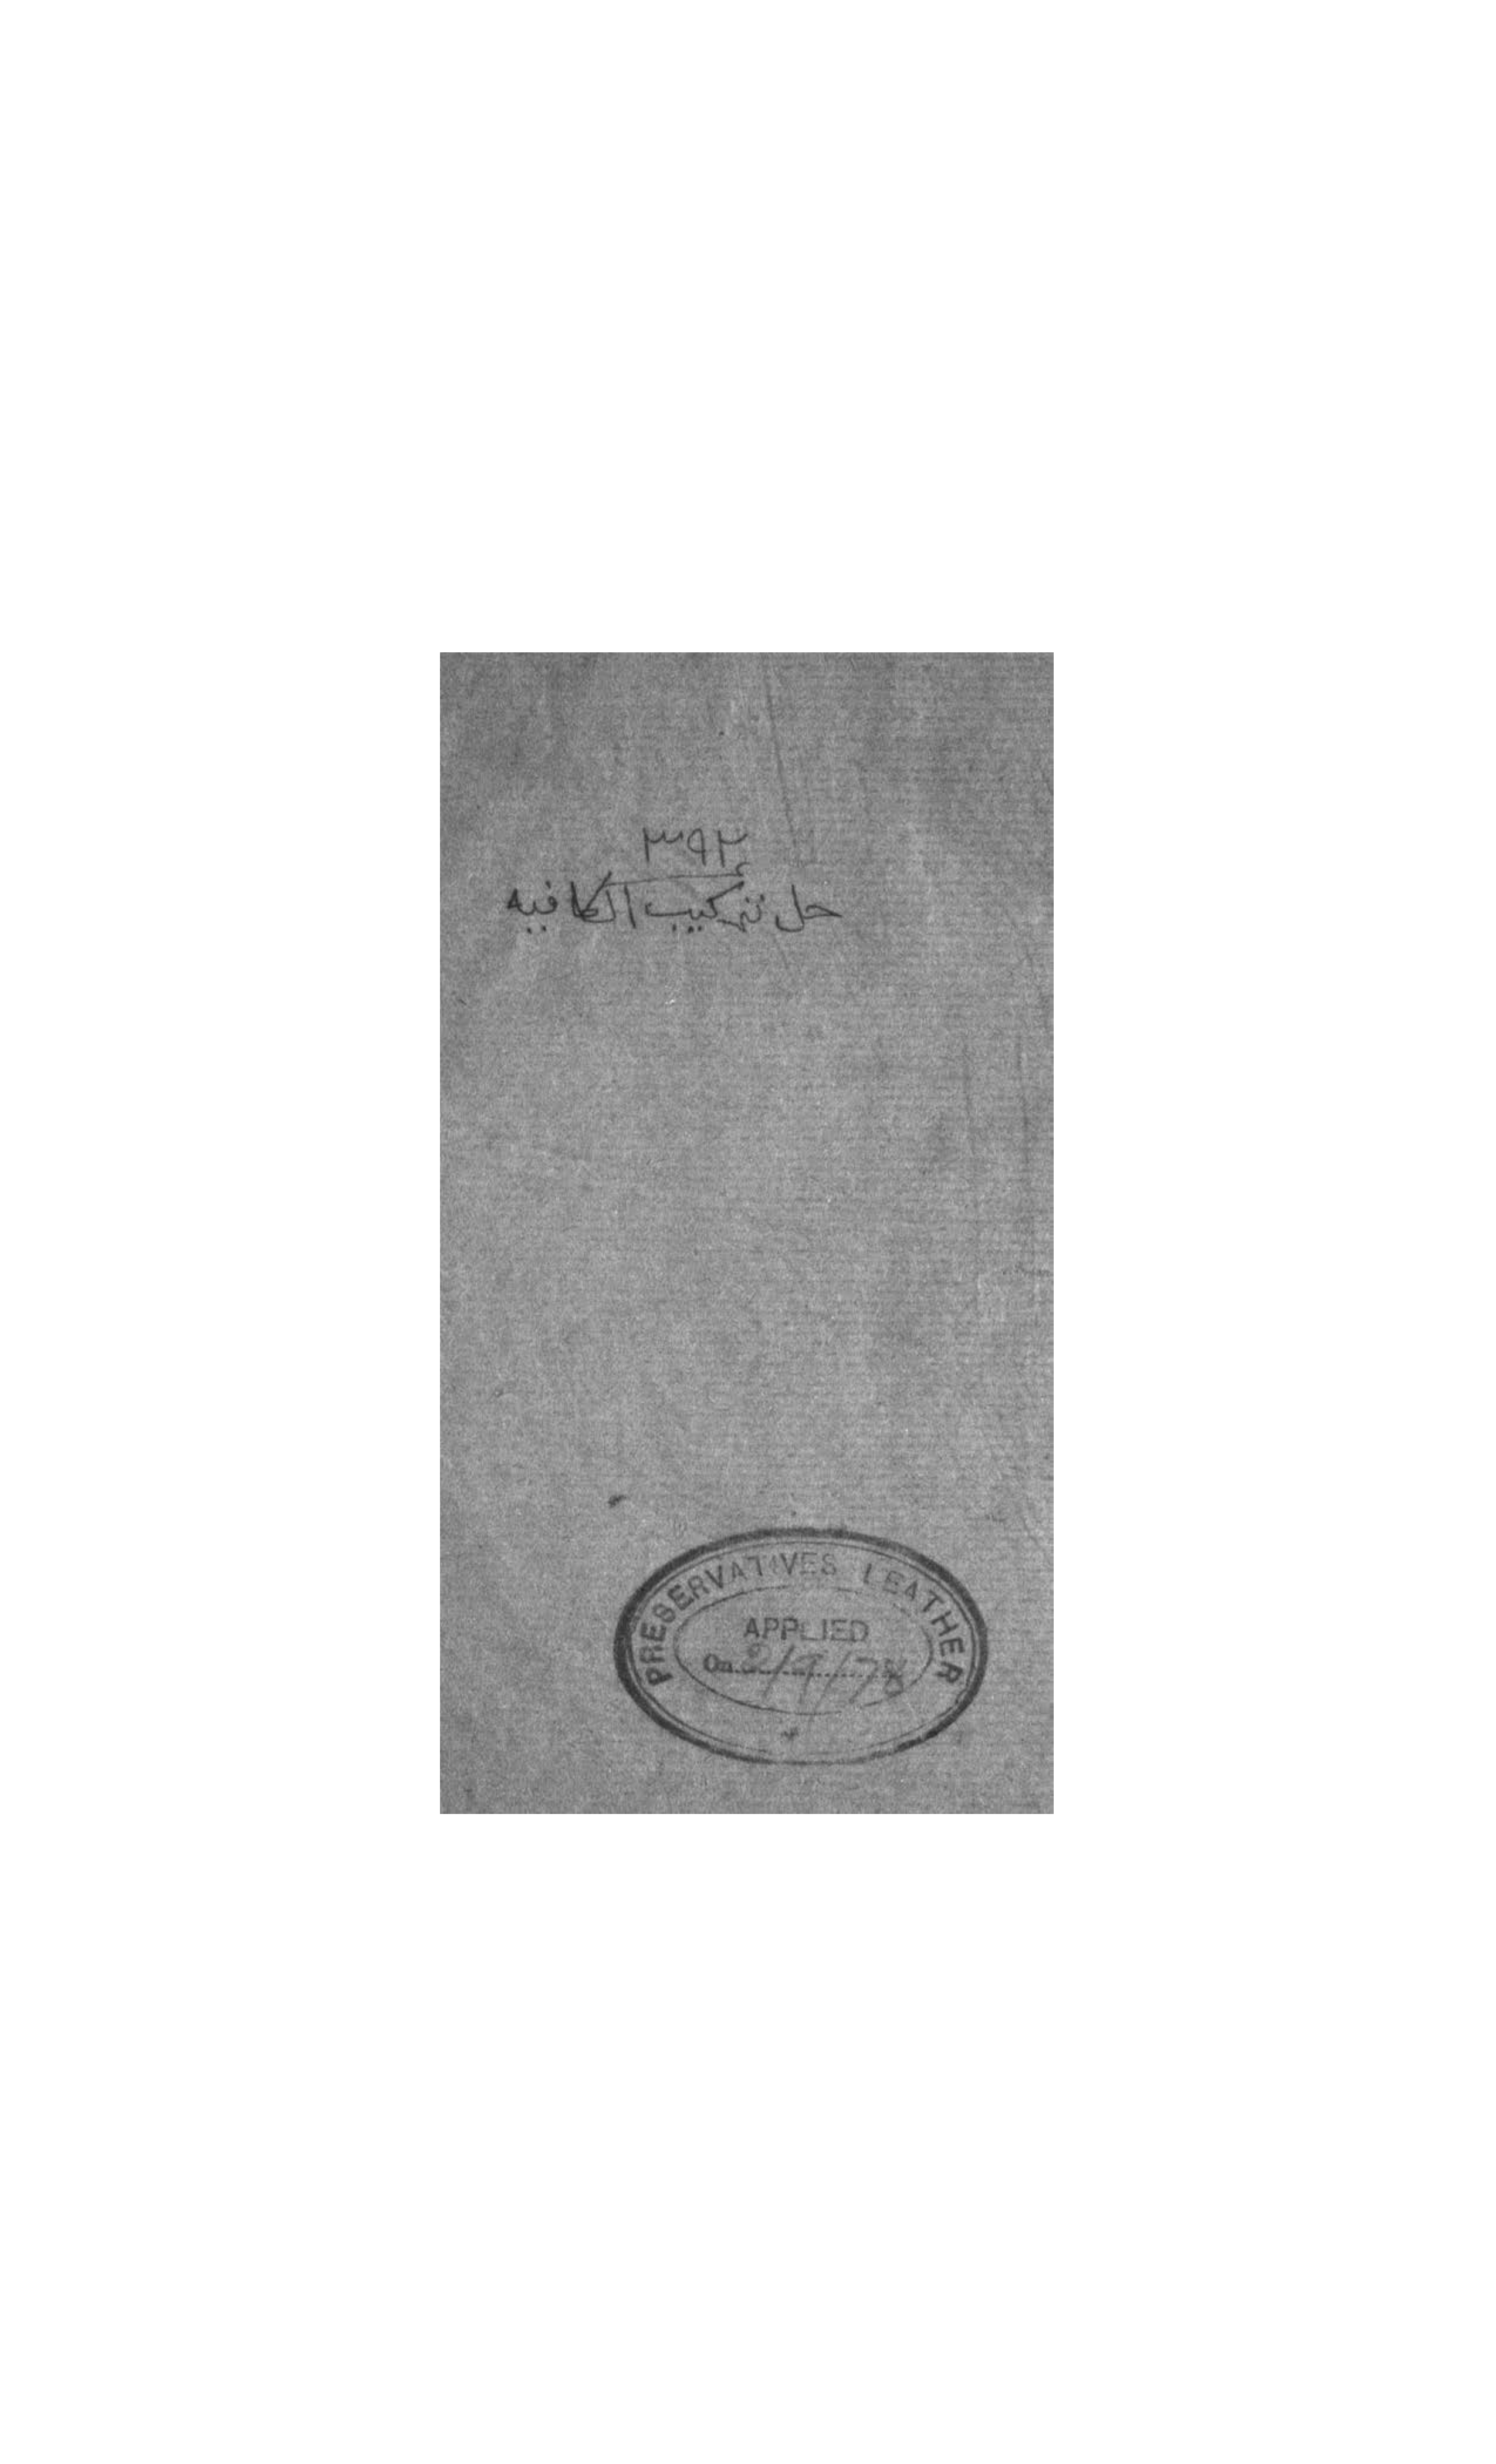 ٣٩٢
حل تركيب الكافيه
PRESERVATIVES LEATHER
APPLIED
On 2/9/78